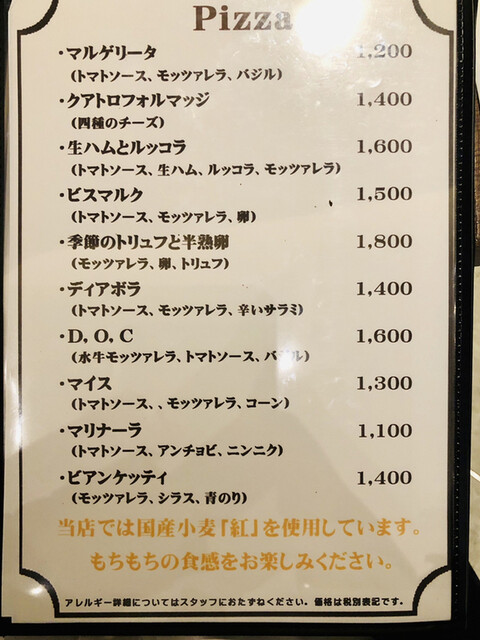 Pizza
・マルゲリータ 1,200
(トマトソース、モッツァレラ、バジル)
・クアトロフォルマッジ 1,400
(四種のチーズ)
・生ハムとルッコラ 1,600
(トマトソース、生ハム、ルッコラ、モッツァレラ)
・ビスマルク 1,500
(トマトソース、モッツァレラ、卵)
・季節のトリュフと半熟卵 1,800
(モッツァレラ、卵、トリュフ)
・ディアボラ 1,400
(トマトソース、モッツァレラ、辛いサラミ)
・D, O, C 1,600
(水牛モッツァレラ、トマトソース、バジル)
・マイス 1,300
(トマトソース、、モッツァレラ、コーン)
・マリナーラ 1,100
(トマトソース、アンチョビ、ニンニク)
・ビアンケッティ 1,400
(モッツァレラ、シラス、青のり)
当店では国産小麦「紅」を使用しています。
もちもちの食感をお楽しみください。
アレルギー詳細についてはスタッフにおたずねください。価格は税別表記です。